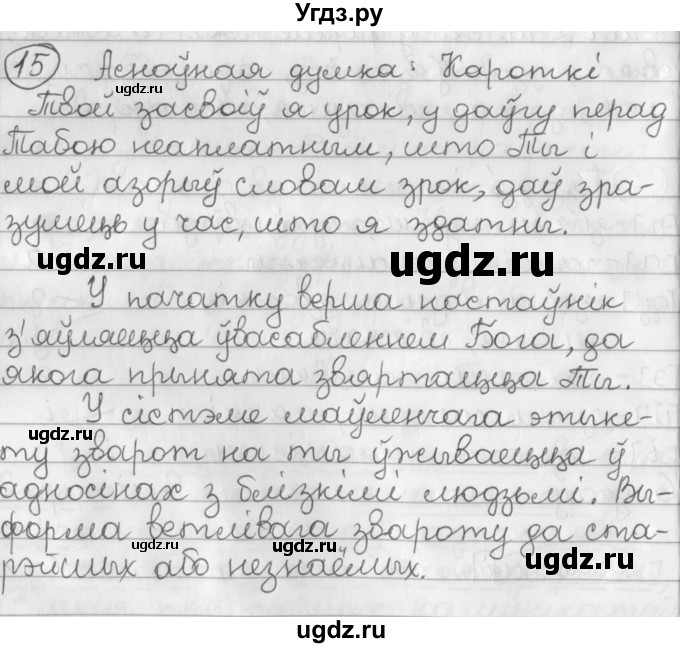 Угдз.ру
15 Асноўная думка: Кароткі
Твой засвоіў я урок, у даўгу перад
Табою неаплатным, што Ты і
мой азорыў словам зрок, даў зра-
зумець у час, што я здатны.
У пачатку верша настаўнік
з'яўляецца ўвасабленнем Бога, да
якога прынята звяртацца Ты.
У сістэме маўленчага этыке-
ту зварот на ты ўжываецца ў
адносінах з блізкімі людзьмі. Вы-
форма ветлівага звароту да ста-
рэйшых або незнаёмых.
ugdz.ru
ugdz.ru
ugdz.ru
ugdz.ru
ugdz.ru
ugdz.ru
ugdz.ru
ugdz.ru